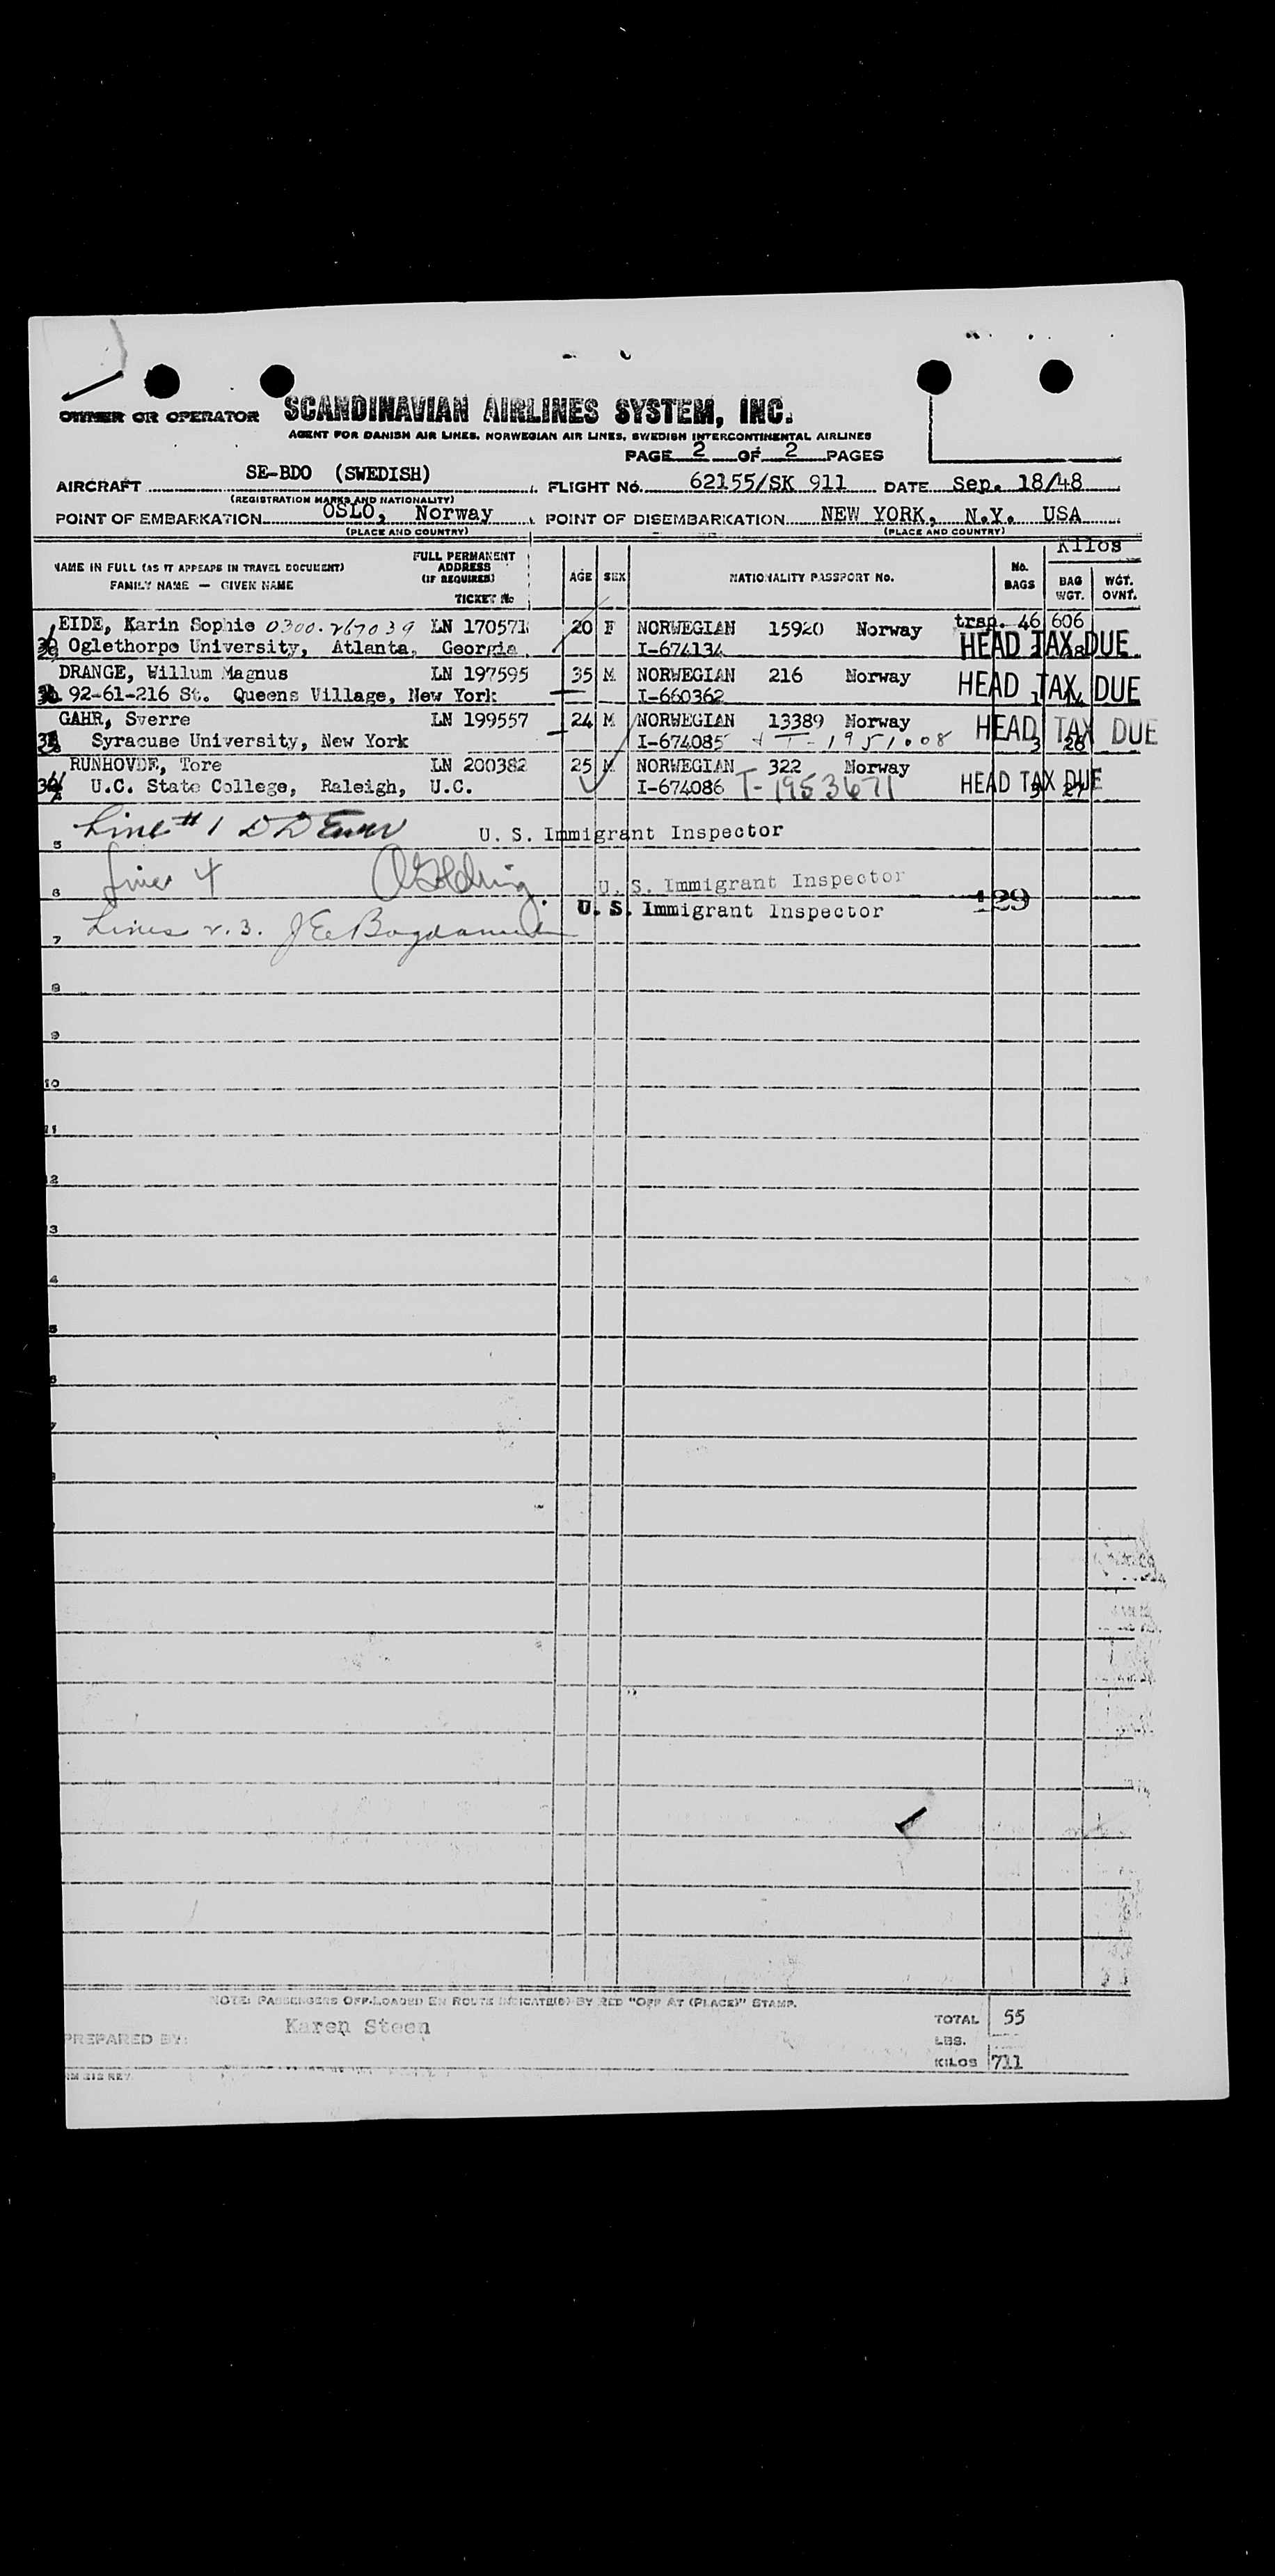 OWNER OR OPERATOR SCANDINAVIAN AIRLINES SYSTEM, INC.
AGENT FOR DANISH AIR LINES, NORWEGIAN AIR LINES, SWEDISH INTERCONTINENTAL AIRLINES
PAGE 2 OF 2 PAGES
AIRCRAFT SE-BDO (SWEDISH) FLIGHT No. 62155/SK 911 DATE Sep. 18/48
(REGISTRATION MARKS AND NATIONALITY)
POINT OF EMBARKATION OSLO, Norway POINT OF DISEMBARKATION NEW YORK, N.Y. USA
(PLACE AND COUNTRY) (PLACE AND COUNTRY)
Kilos
NAME IN FULL (AS IT APPEARS IN TRAVEL DOCUMENT) FAMILY NAME — GIVEN NAME
FULL PERMANENT ADDRESS (IF REQUIRED) TICKET No
AGE SEX NATIONALITY PASSPORT No. No. BAGS BAG WGT. WGT. OVNT.
trsp. 46 606
EIDE, Karin Sophie 0300-267039 LN 170571 20 F NORWEGIAN 15920 Norway
Oglethorpe University, Atlanta, Georgia I-674134 HEAD TAX DUE
DRANGE, Willum Magnus LN 197595 35 M NORWEGIAN 216 Norway HEAD TAX DUE
92-61-216 St. Queens Village, New York I-660362
GAHR, Sverre LN 199557 24 M NORWEGIAN 13389 Norway HEAD TAX DUE
Syracuse University, New York I-674085 T-1951008 3 26
RUNHOVDE, Tore LN 200382 25 M NORWEGIAN 322 Norway
U.C. State College, Raleigh, U.C. I-674086 T-1953671 HEAD TAX DUE 3 27
Line #1 U. S. Immigrant Inspector
5
Line 4 U. S. Immigrant Inspector
6
U. S. Immigrant Inspector 129
Lines 2.3.
7
8
9
10
11
12
13
4
5
6
7
8
NOTE: PASSENGERS OFF-LOADED EN ROUTE INDICATE(D) BY RED "OFF AT (PLACE)" STAMP.
PREPARED BY: Karen Steen
TOTAL 55
LBS.
KILOS 711